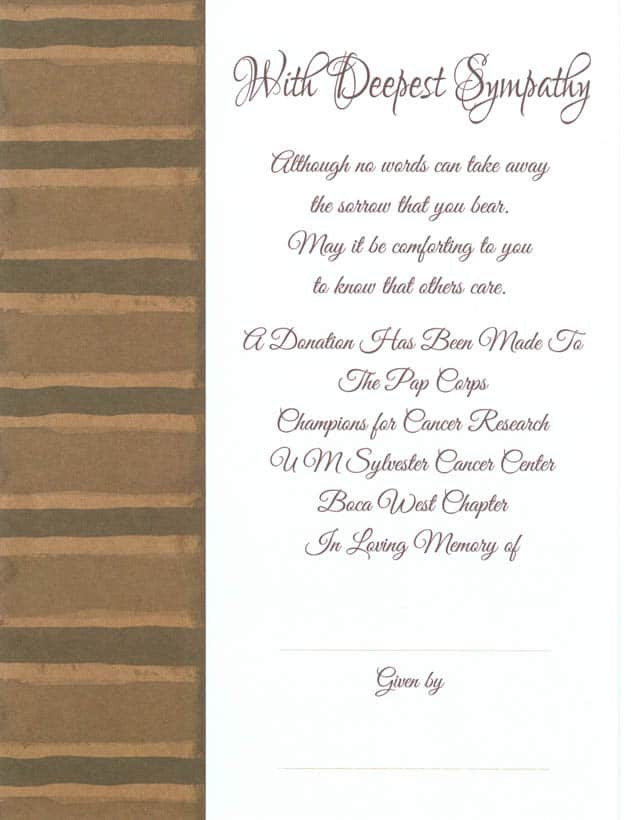 With Deepest Sympathy
Although no words can take away
the sorrow that you bear.
May it be comforting to you
to know that others care.
A Donation Has Been Made To
The Pap Corps
Champions for Cancer Research
U M Sylvester Cancer Center
Boca West Chapter
In Loving Memory of
Given by